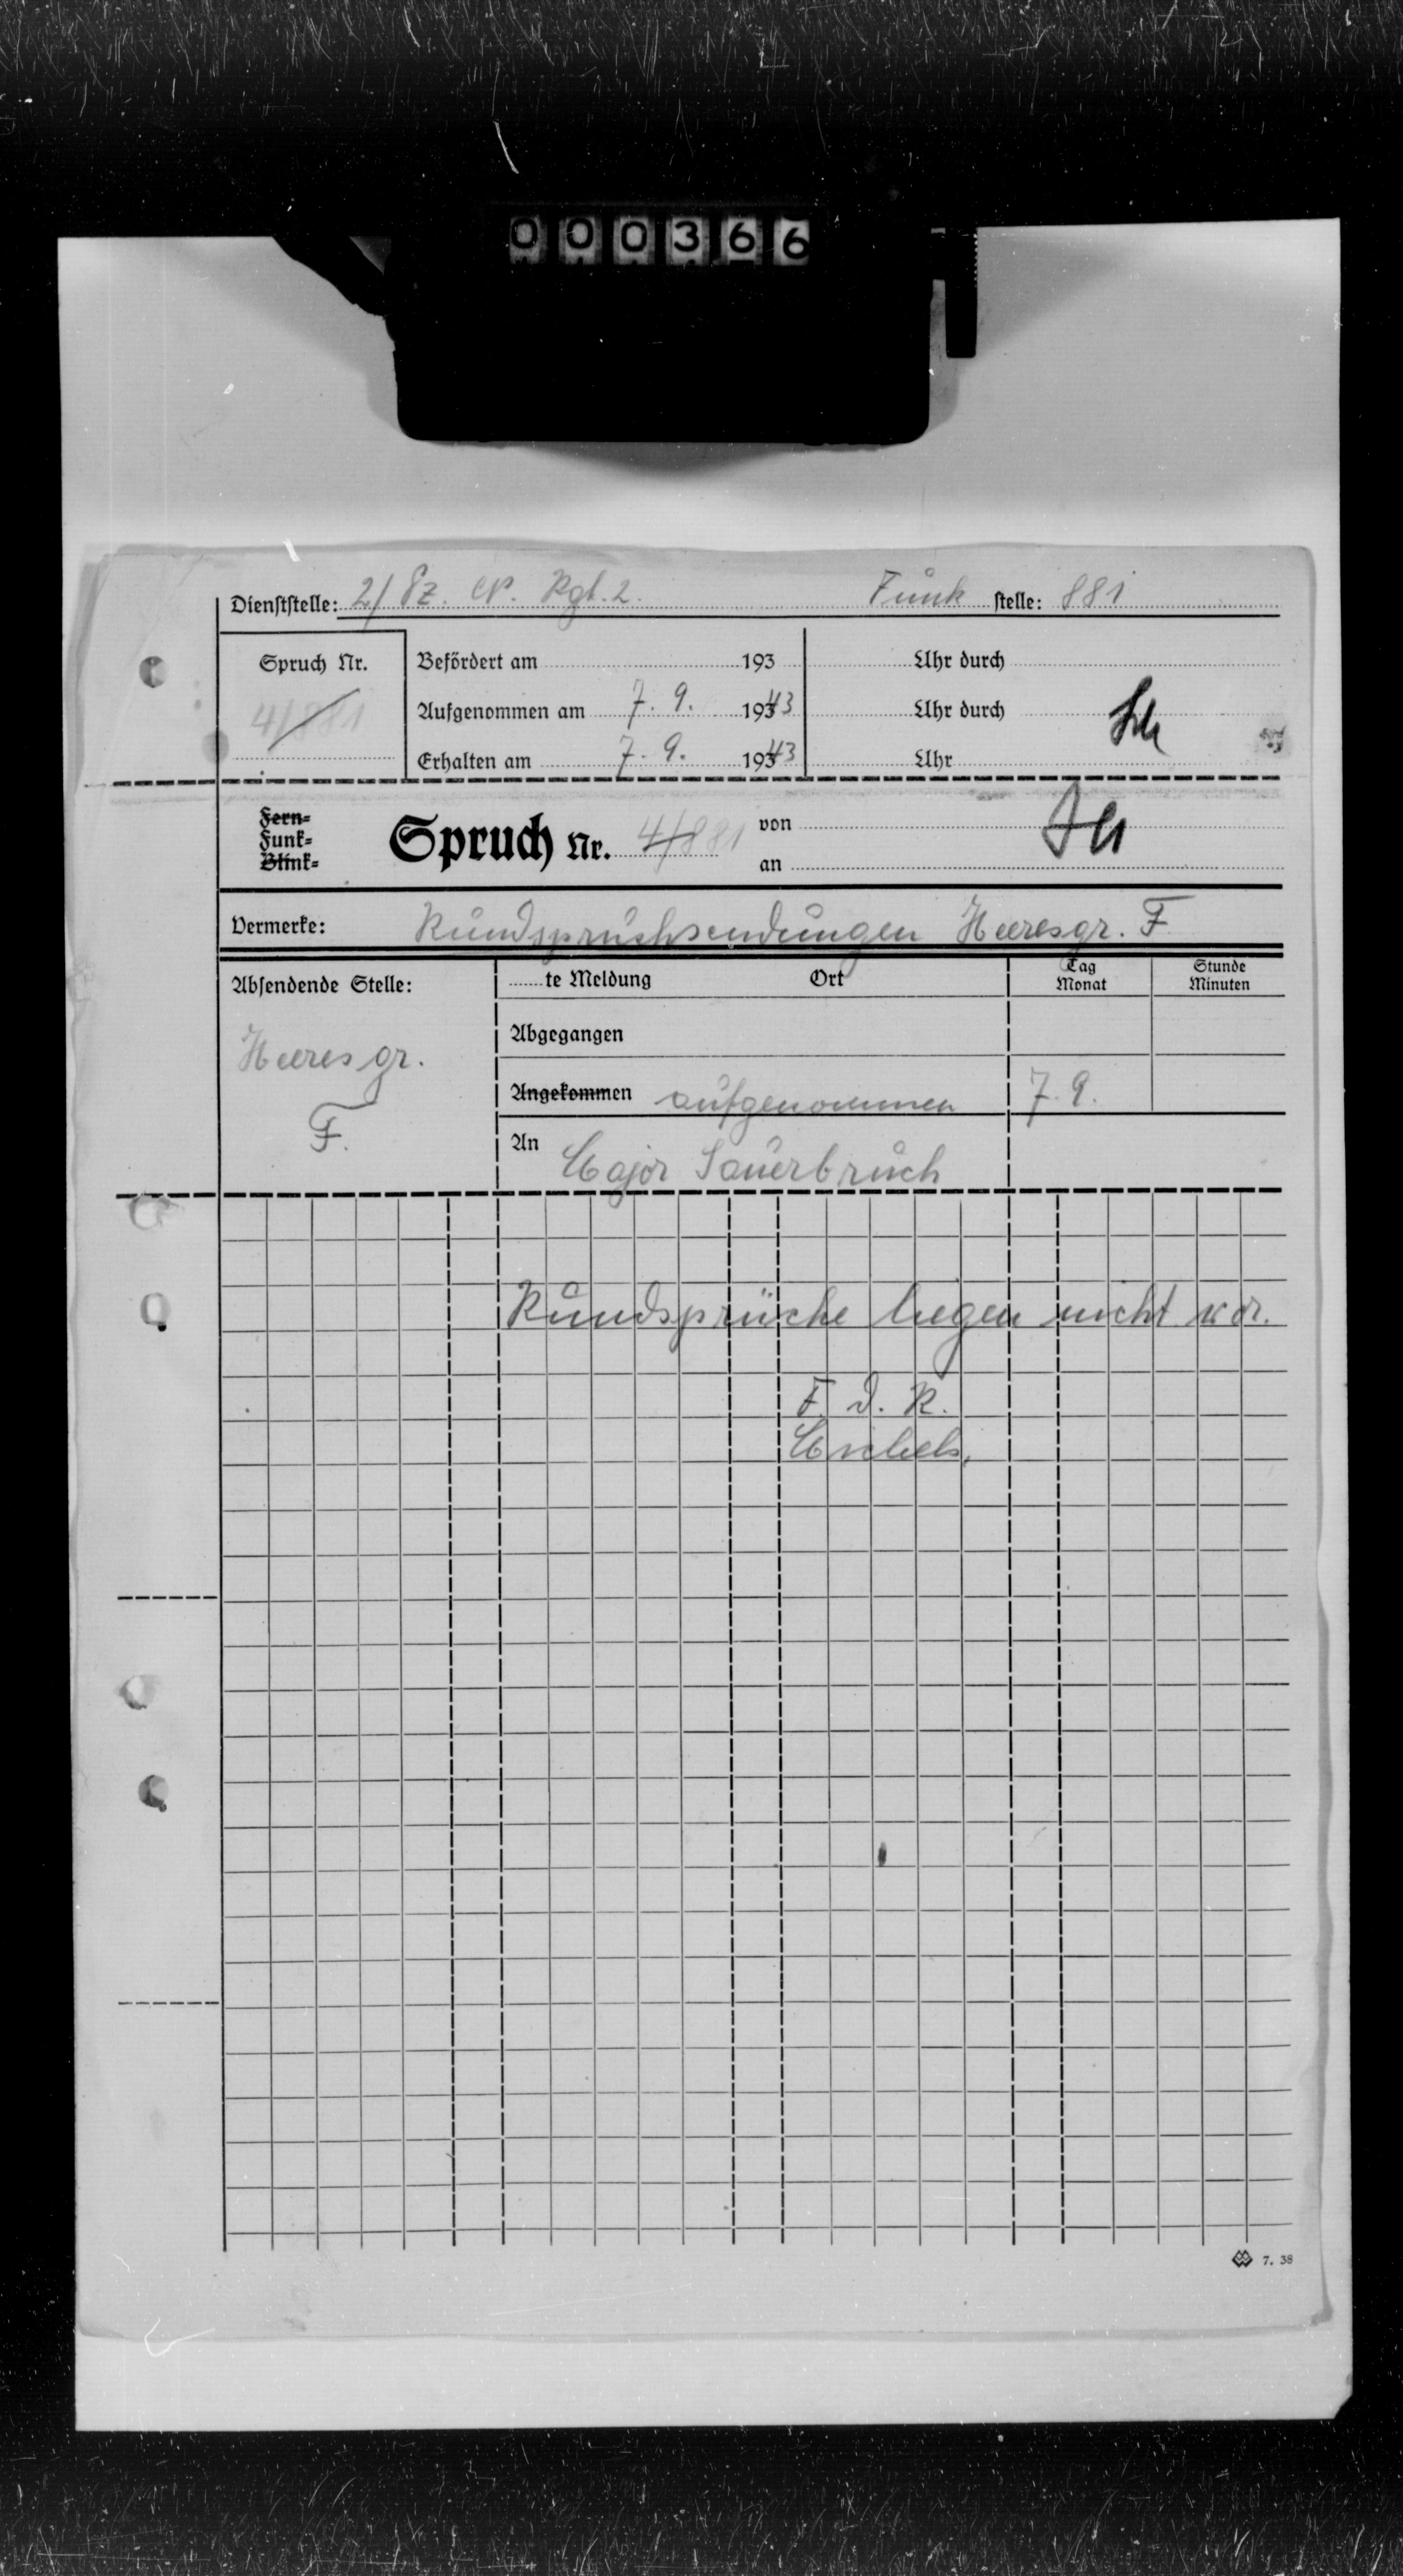 000366
Dienststelle: 2/ Pz. N. Rgt. 2. Funk stelle: 881
Spruch Nr. Befördert am 193 Uhr durch
4/881 Aufgenommen am 7. 9. 1943 Uhr durch
Erhalten am 7. 9. 1943 Uhr
Fern-
Funk- Spruch Nr. 4/881 von
Blink- an
Vermerke: Rundspruchsendungen Heeresgr. F
Absendende Stelle: te Meldung Ort Tag Monat Stunde Minuten
Heeresgr. Abgegangen
F. Angekommen aufgenommen 7. 9.
An Major Sauerbruch
Rundsprüche liegen nicht vor.
F. d. R.
7. 38